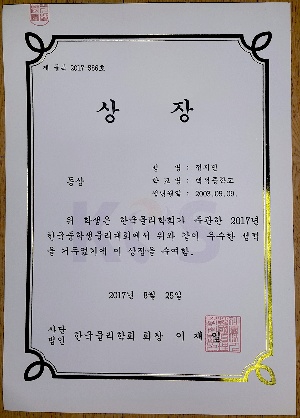 2017-586호
상 장
동상
생년월일 : 2003.09.09.
위 학생은 한국물리학회가 주관한 2017년
한국중학생물리대회에서 위와 같이 우수한 성적
을 거두었기에 이 상장을 수여함.
2017년 8월 25일
사단
법인
한국물리학회 회장 이 재 일